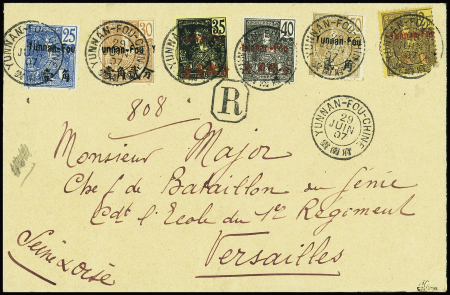 25 30 35 40
Yunnan-Fou Yunnan-Fou Yunnan-Fou
YUNNAN-FOU-CHINE
R
808
YUNNAN-FOU-CHINE
29
JUIN
07
Monsieur Major
Chef de Bataillon du Génie
Cdt l'Ecole du 1er Regiment
Versailles
Seine & Oise